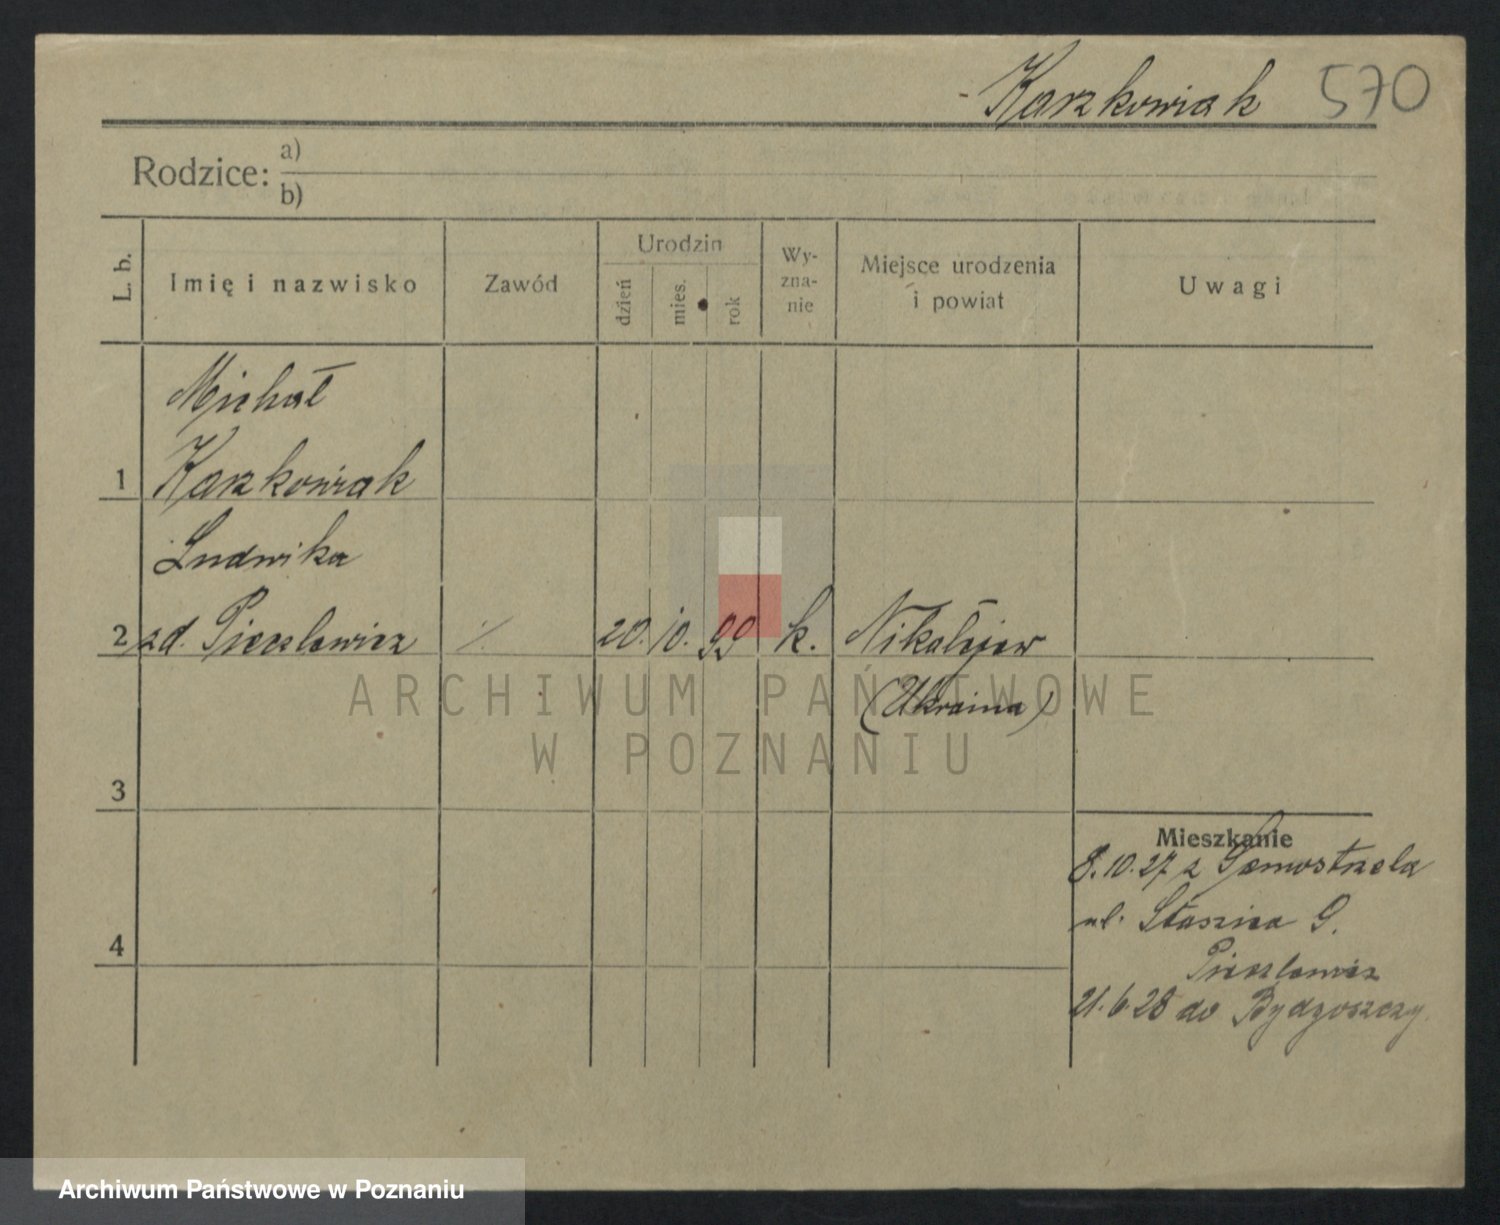 Karzkowiak 570
Rodzice: a)
b)
L. b.
Imię i nazwisko
Zawód
Urodzin
dzień
mies.
rok
Wy-
zna-
nie
Miejsce urodzenia
i powiat
Uwagi
Michał
1 Karzkowiak
Ludwika
2 zd. 20. 10. 99 k. Nikolajew
(Ukraina)
ARCHIWUM PAŃSTWOWE
W POZNANIU
3
Mieszkanie
8.10.27 z Samostrzela
4
ul. Staszica 9.
21.6.28 do Bydgoszczy
Archiwum Państwowe w Poznaniu